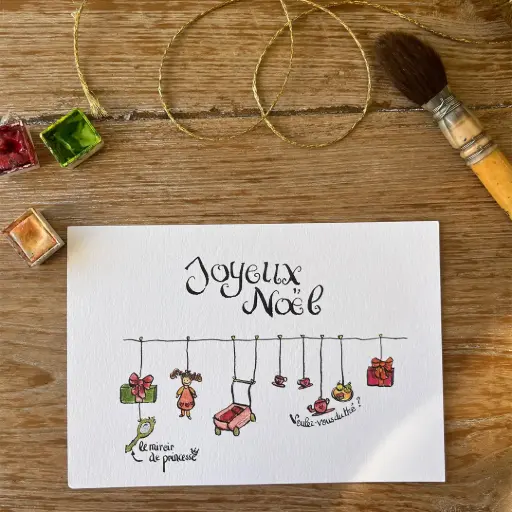 Joyeux
Noël
le miroir
de princesse
Voulez-vous du thé ?